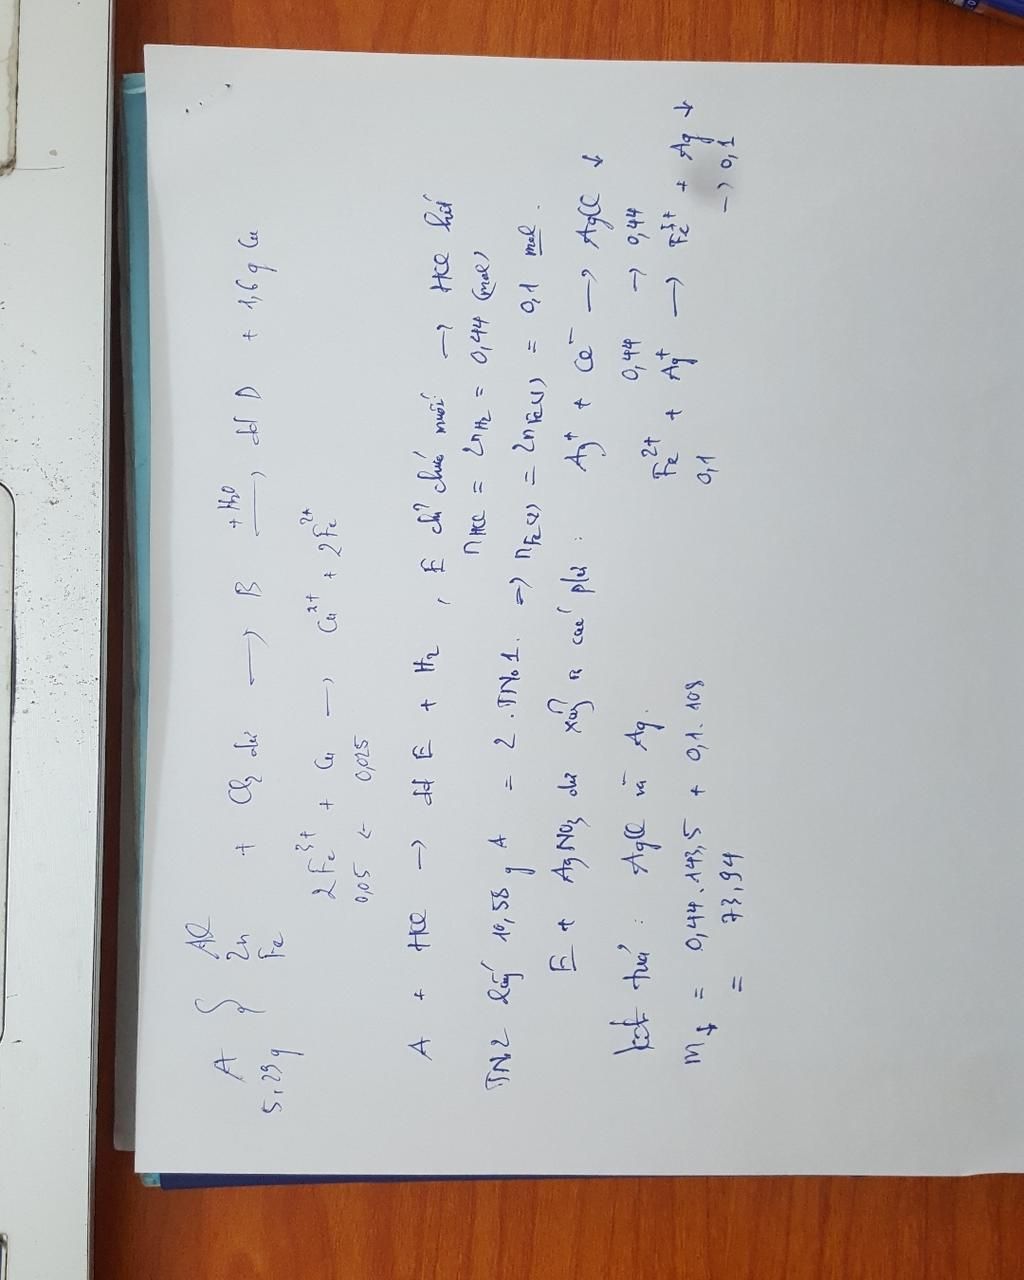 A { Al
Zn + Cl2 dư → B +H2O → dd D + 1,6 g Cu
5,29 g Fe
2Fe3+ + Cu → Cu2+ + 2Fe2+
0,05 ← 0,025
A + HCl → dd E + H2, E chỉ chứa muối → HCl hết
nHCl = 2nH2 = 0,44 (mol)
TN2 lấy 10,58 g A = 2.TN01 → nFe(2) = 2nFe(1) = 0,1 mol.
E + AgNO3 dư xảy ra các pứ: Ag+ + Cl- → AgCl ↓
0,44 → 0,44
Fe2+ + Ag+ → Fe3+ + Ag ↓
0,1 → 0,1
kết tủa: AgCl và Ag.
m↓ = 0,44.143,5 + 0,1.108
= 73,94